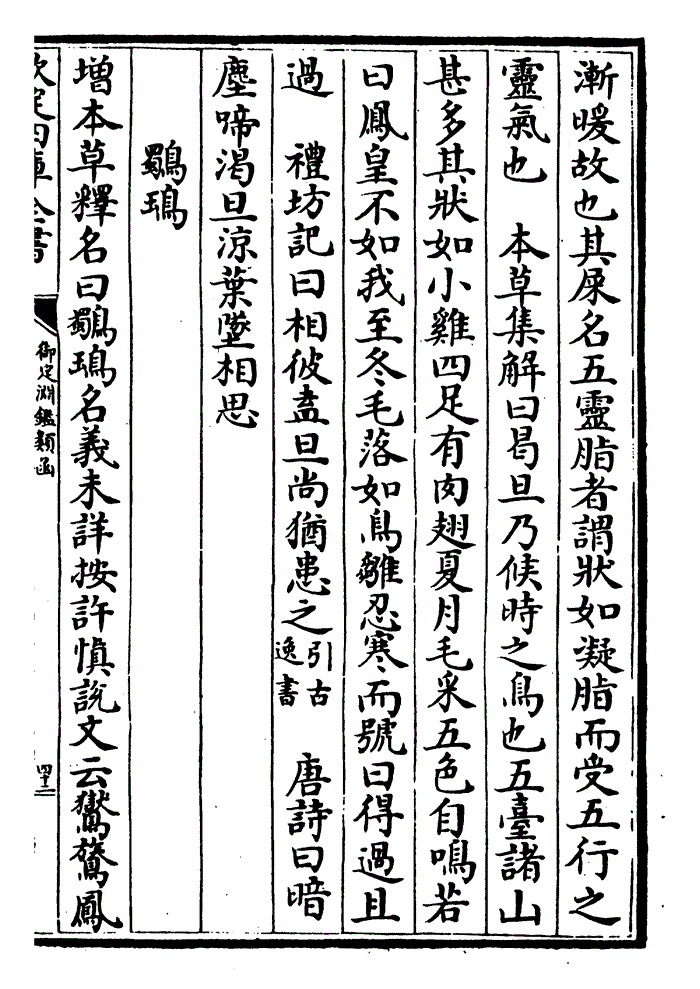 漸暖故也其屎名五靈脂者謂狀如凝脂而受五行之
靈氣也　本草集解曰曷旦乃候時之鳥也五臺諸山
甚多其狀如小雞四足有肉翅夏月毛采五色自鳴若
曰鳳皇不如我至冬毛落如鳥雛忍寒而號曰得過且
過　禮坊記曰相彼盍旦尚猶患之引古逸書　唐詩曰暗
塵啼渴旦涼葉墜相思
鸀鳿
增本草釋名曰鸀鳿名義未詳按許慎說文云鸑鷟鳳
欽定四庫全書
御定淵鑑類函
四十三